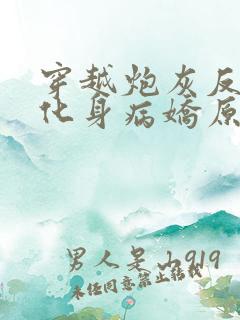 穿越炮灰反
化身病嬌原
男人是山919
未经同意禁止转载